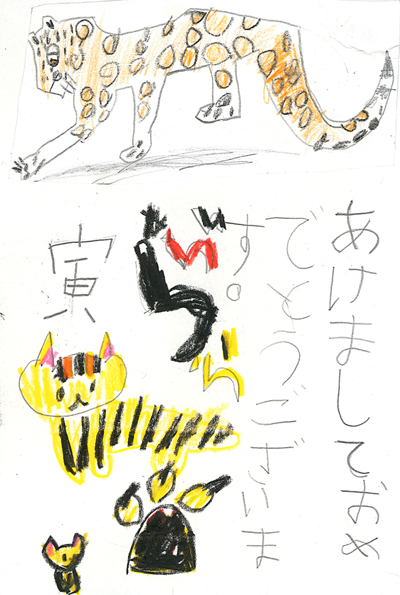 あけましておめ
でとうございま
す。
寅